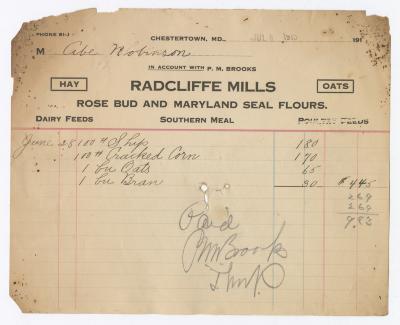 PHONE 81-J
CHESTERTOWN, MD., JUL 1910 191
M Abe Robinson
IN ACCOUNT WITH P. M. BROOKS
HAY RADCLIFFE MILLS OATS
ROSE BUD AND MARYLAND SEAL FLOURS.
DAIRY FEEDS SOUTHERN MEAL POULTRY FEEDS
June 28 100# Ship 180
100# Cracked Corn 170
1 bu Oats 65
1 bu Bran 30 $4.45
269
269
9.83
Paid
PM Brooks